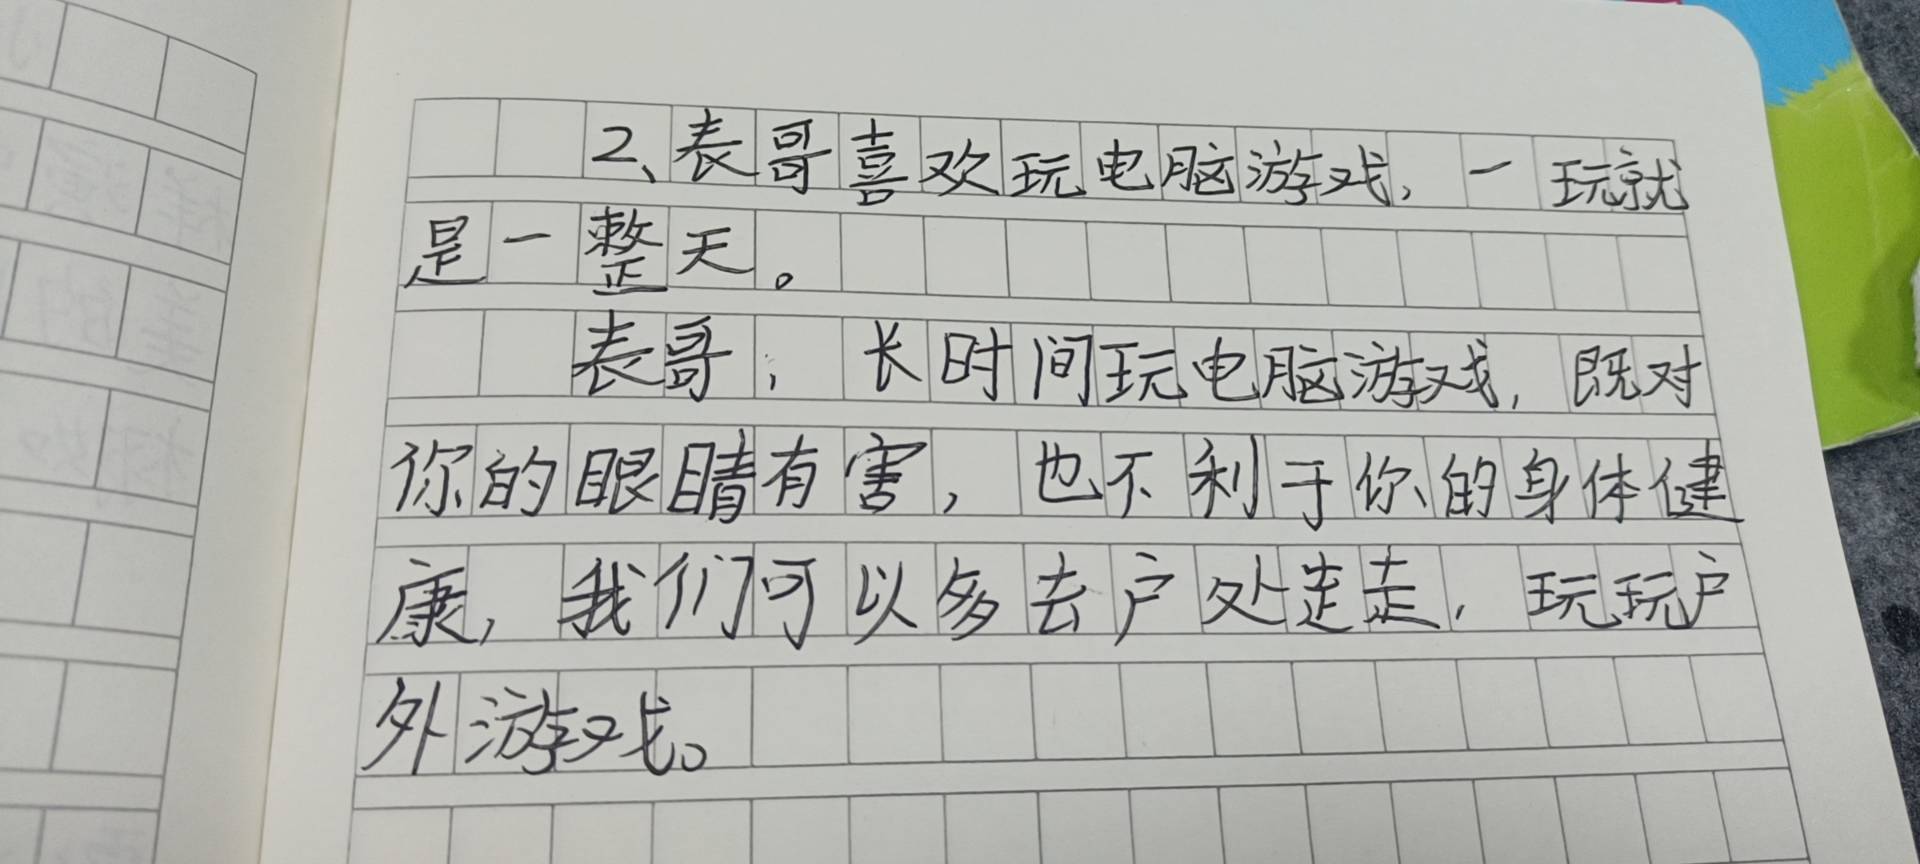 2、表哥喜欢玩电脑游戏，一玩就
是一整天。
表哥；长时间玩电脑游戏，既对
你的眼睛有害，也不利于你的身体健
康，我们可以多去户处走走，玩玩户
外游戏。